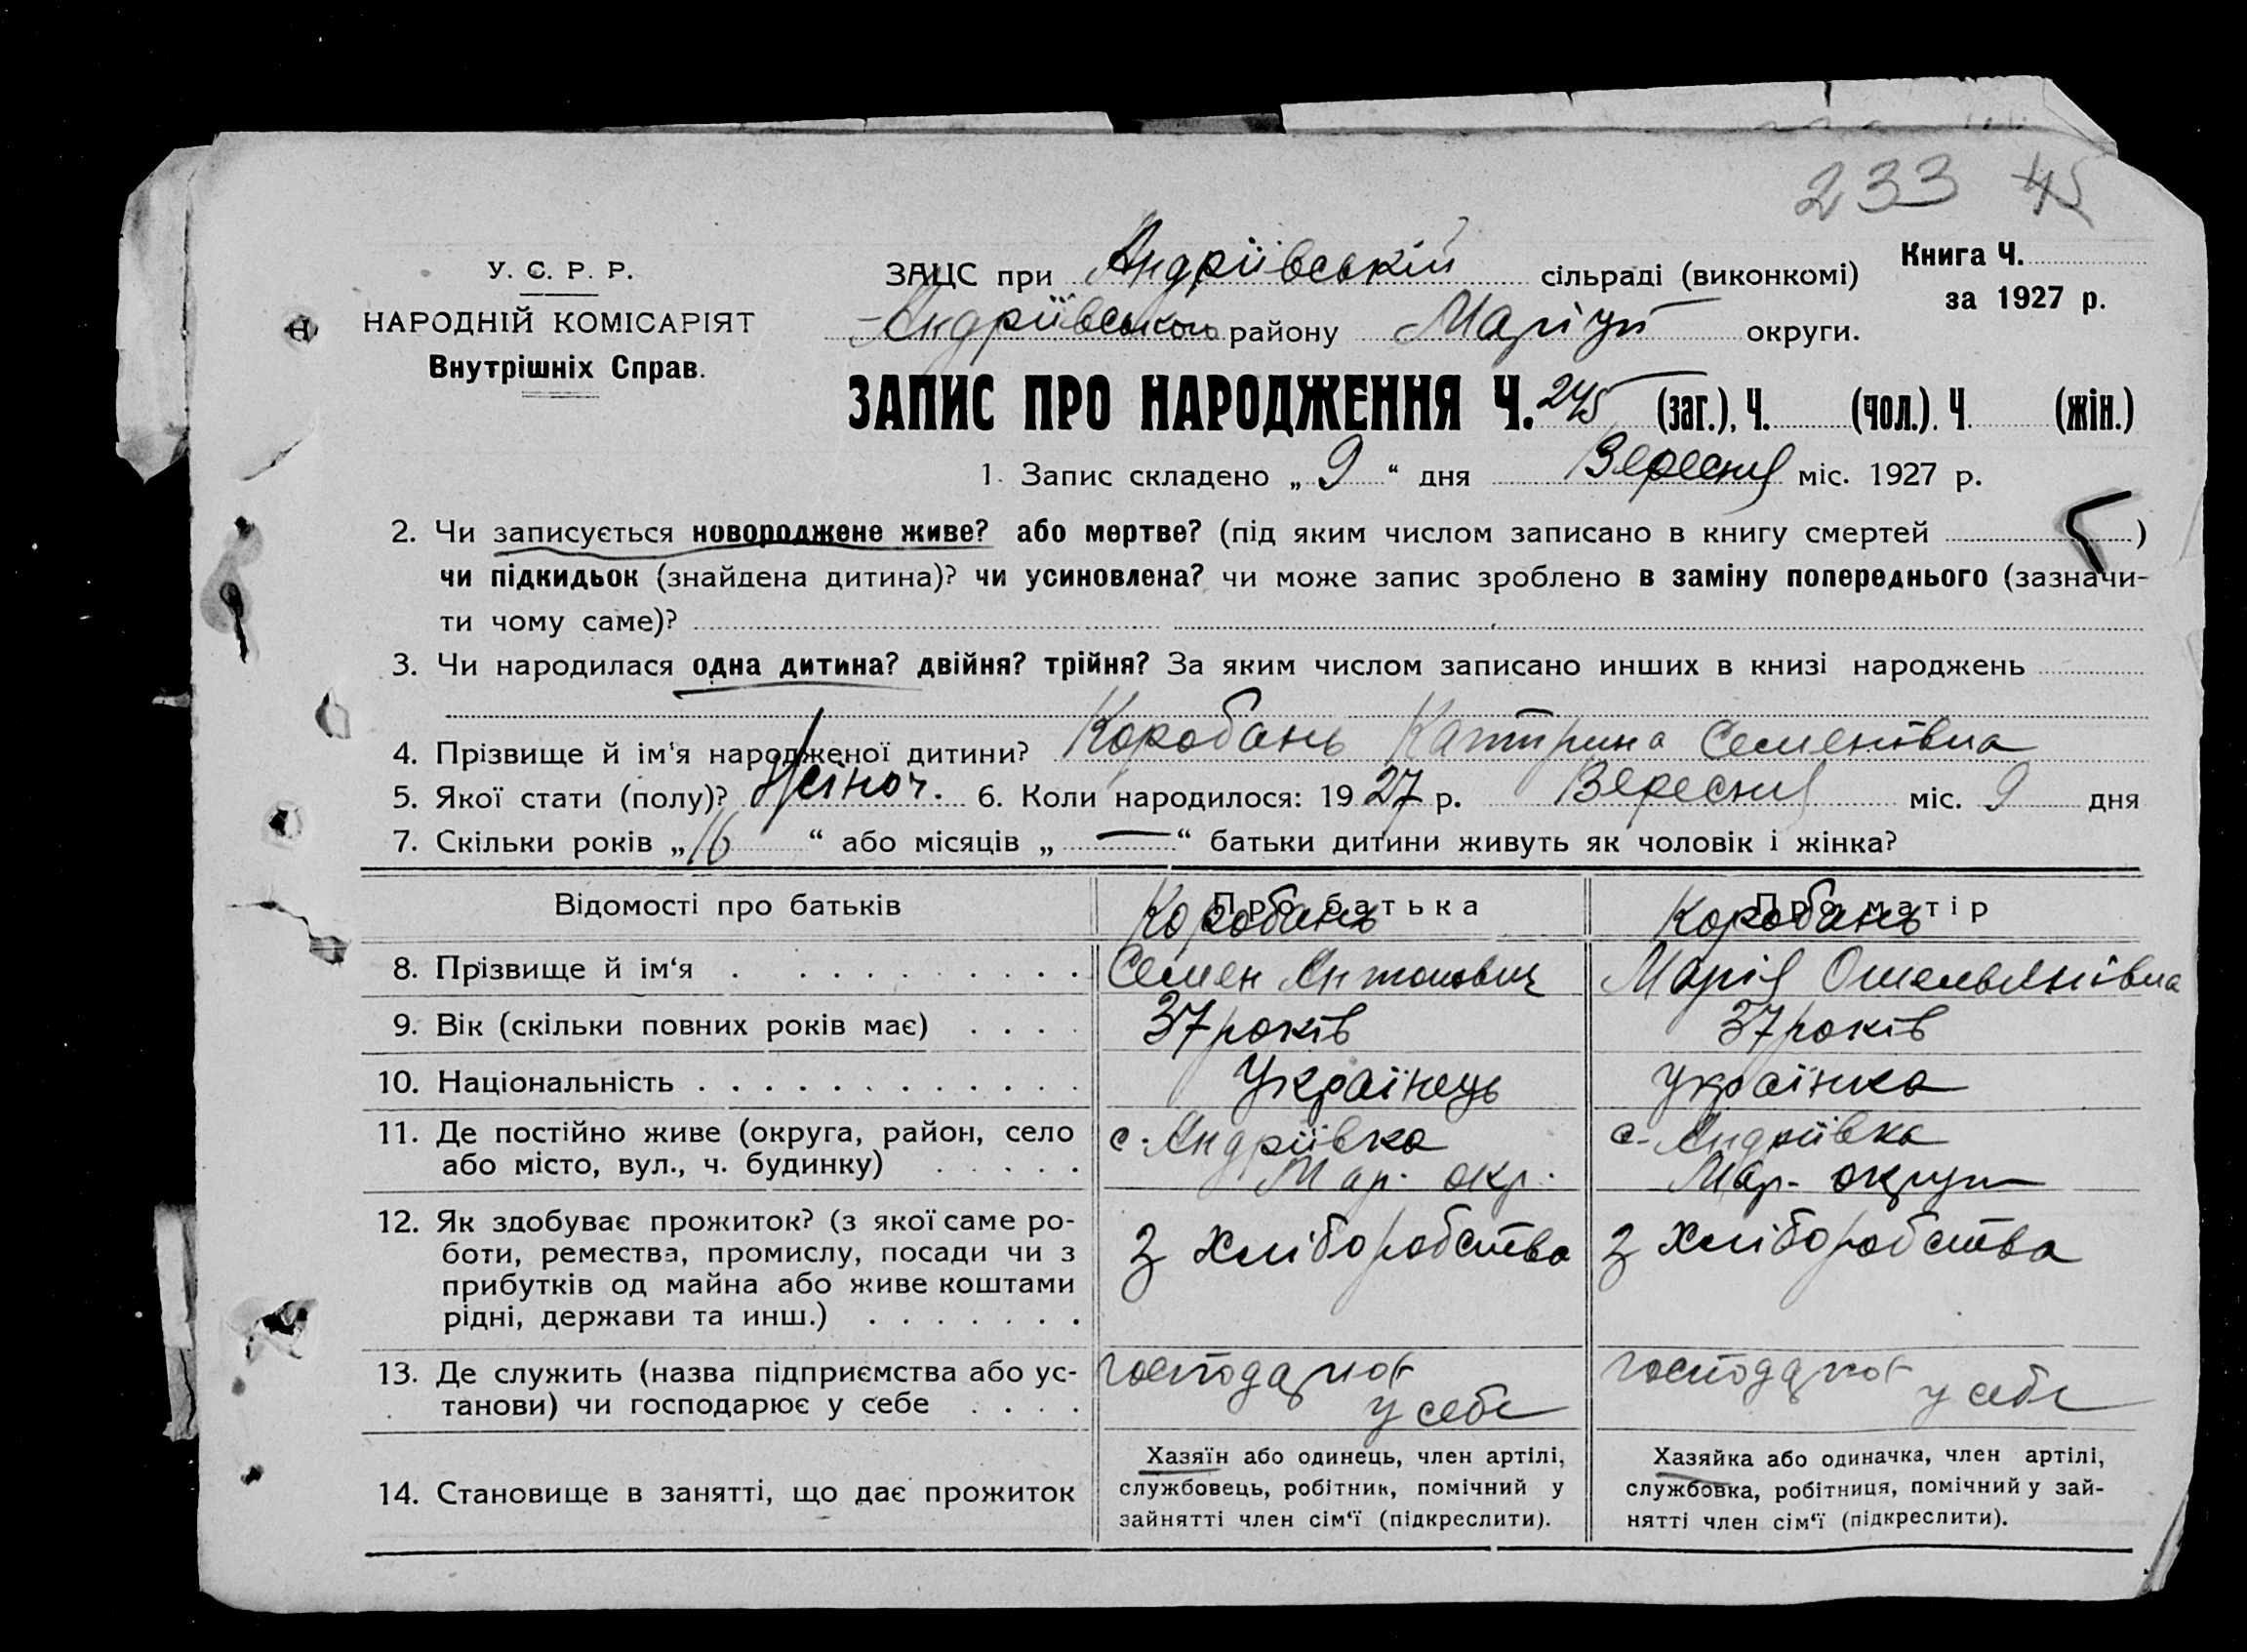 233 45
У. С. Р. Р.
НАРОДНІЙ КОМІСАРІЯТ
Внутрішніх Справ.
ЗАЦС при Андріївській сільраді (виконкомі)
Андріївського району Маріуп округи.
Книга Ч.
за 1927 р.
ЗАПИС ПРО НАРОДЖЕННЯ Ч. 245 (заг.), Ч. (чол.). Ч (жін.)
1. Запис складено „ 9 “ дня Вересня міс. 1927 р.
2. Чи записується новороджене живе? або мертве? (під яким числом записано в книгу смертей )
чи підкидьок (знайдена дитина)? чи усиновлена? чи може запис зроблено в заміну попереднього (зазначи-
ти чому саме)?
3. Чи народилася одна дитина? двійня? трійня? За яким числом записано инших в книзі народжень
4. Прізвище й ім'я народженої дитини? Коробань Катирина Семенівна
5. Якої стати (полу)? Жіноч. 6. Коли народилося: 1927 р. Вересня міс. 9 дня
7. Скільки років „ 16 “ або місяців „ — “ батьки дитини живуть як чоловік і жінка?
Відомості про батьків
Про батька
Про матір
8. Прізвище й ім‘я
Коробань
Семен Антонович
Коробань
Марія Омельянівна
9. Вік (скільки повних років має)
37 років
37 років
10. Національність
Українець
українка
11. Де постійно живе (округа, район, село
або місто, вул., ч. будинку)
с. Андріївка
Мар. окр.
с. Андріївка
Мар. округи
12. Як здобуває прожиток? (з якої саме ро-
боти, ремества, промислу, посади чи з
прибутків од майна або живе коштами
рідні, держави та инш.)
З хліборобства
З хліборобства
13. Де служить (назва підприємства або ус-
танови) чи господарює у себе
господарює
у себе
господарює
у себе
14. Становище в занятті, що дає прожиток
Хазяїн або одинець, член артілі,
службовець, робітник, помічний у
зайнятті член сім‘ї (підкреслити).
Хазяйка або одиначка, член артілі,
службовка, робітниця, помічний у зай-
нятті член сім‘ї (підкреслити).